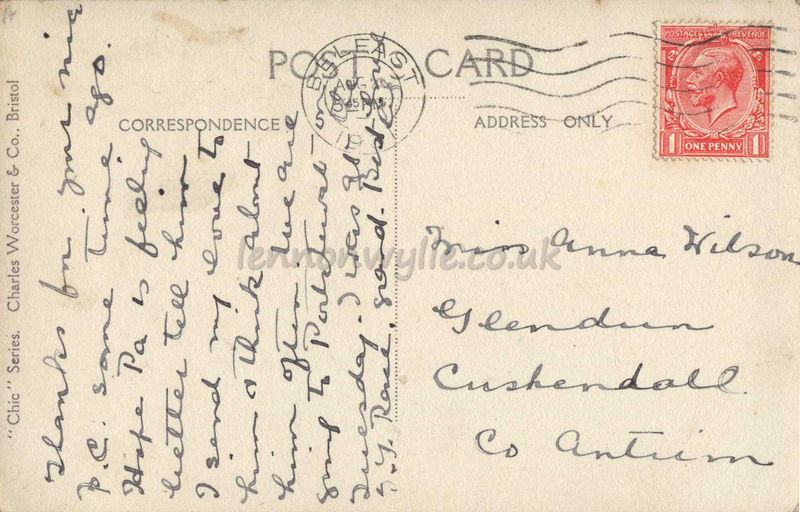 POST CARD
CORRESPONDENCE
ADDRESS ONLY
"Chic" Series. Charles Worcester & Co., Bristol
BELFAST
AUG
5
19
POSTAGE REVENUE
1 ONE PENNY 1
Thanks for your nice
p.c. some time ago.
Hope Pa is feeling
better tell him
I send my love to
him & think about
him often. We are
going to Portstewart
Tuesday. I was at
Race, grand.
Miss Anna Wilson
Glendun
Cushendall
Co Antrim
lennonwylie.co.uk